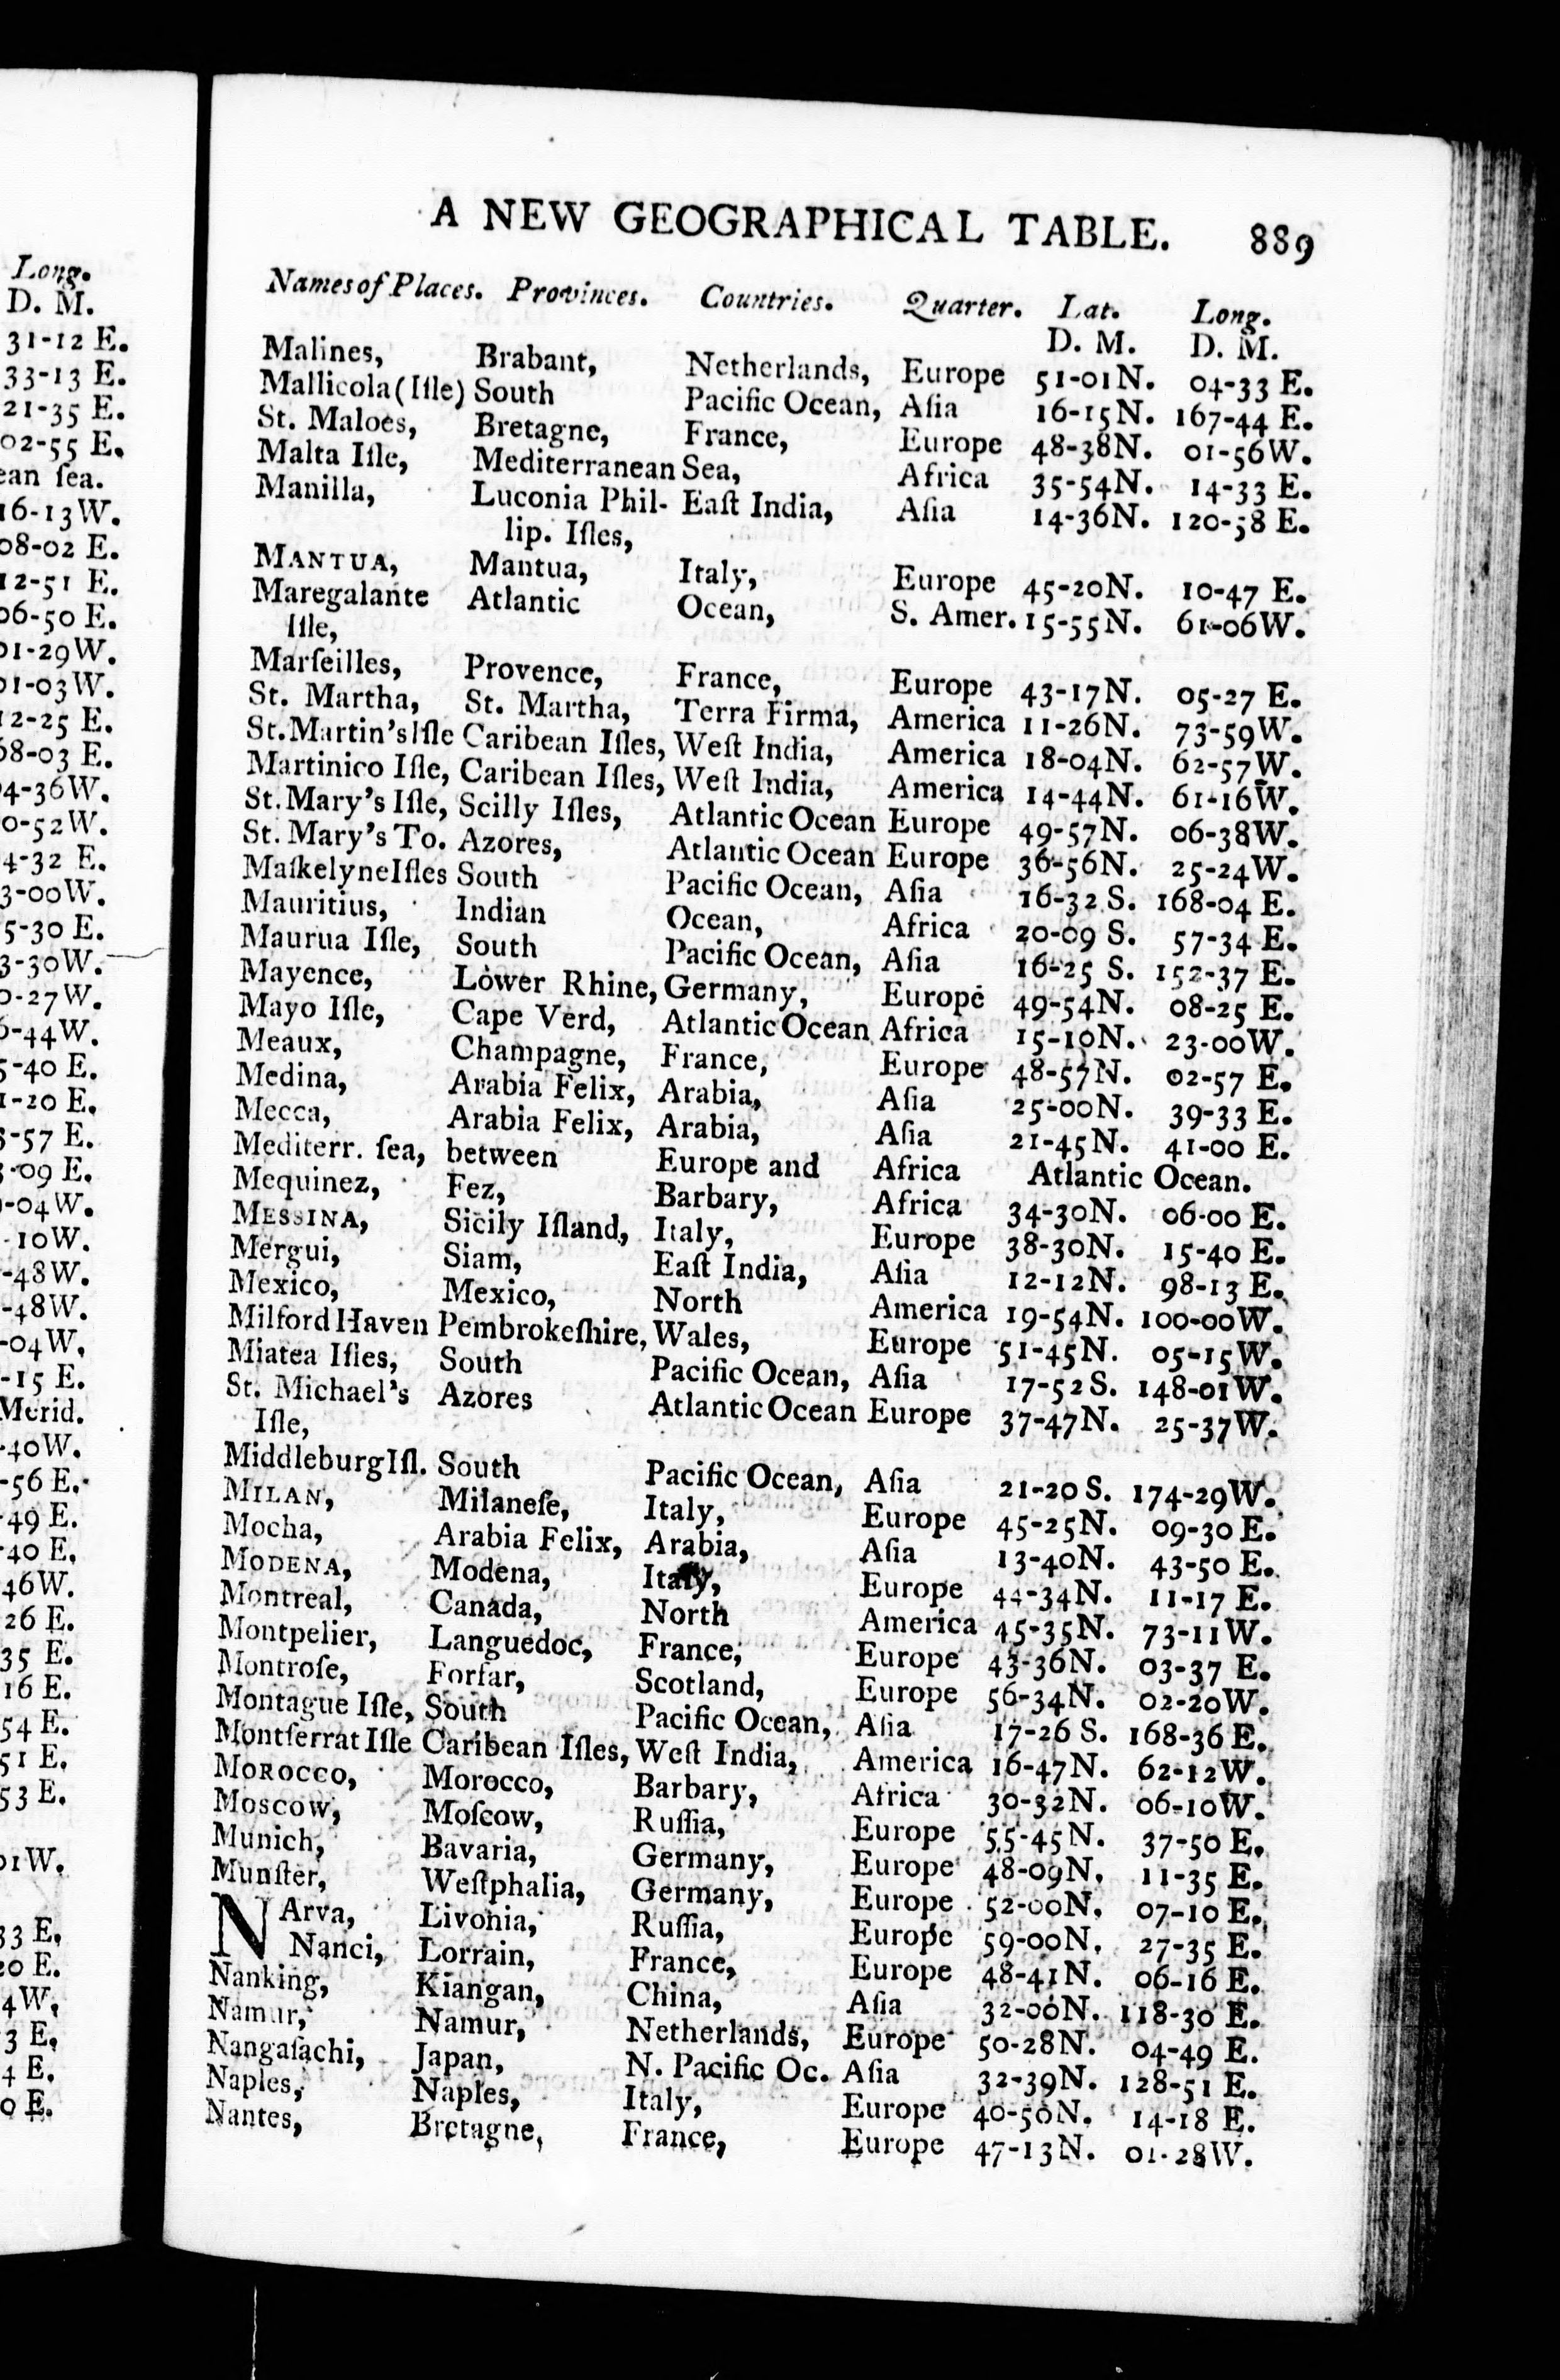 Long.
D. M.
31-12 E.
33-13 E.
21-35 E.
02-55 E.
ean ſea.
16-13W.
08-02 E.
12-51 E.
06-50 E.
01-29W.
01-03W.
12-25 E.
68-03 E.
4-36W.
0-52W.
4-32 E.
3-00W.
5-30 E.
3-30W.
0-27W.
6-44W.
5-40 E.
1-20 E.
3-57 E.
3-09 E.
-04W.
10W.
-48W.
-48W.
-04W.
-15 E.
Merid.
-40W.
-56 E.
-49 E.
-40 E.
46W.
26 E.
35 E.
16 E.
54 E.
51 E.
53 E.
01W.
33 E.
20 E.
4W.
3 E.
4 E.
0 E.
A NEW GEOGRAPHICAL TABLE. 889
Names of Places. Provinces. Countries. Quarter. Lat. Long.
D. M. D. M.
Malines, Brabant, Netherlands, Europe 51-01N. 04-33 E.
Mallicola (Iſle) South Pacific Ocean, Aſia 16-15N. 167-44 E.
St. Maloes, Bretagne, France, Europe 48-38N. 01-56W.
Malta Iſle, Mediterranean Sea, Africa 35-54N. 14-33 E.
Manilla, Luconia Phil- Eaſt India, Aſia 14-36N. 120-58 E.
lip. Iſles,
MANTUA, Mantua, Italy, Europe 45-20N. 10-47 E.
Maregalante Atlantic Ocean, S. Amer. 15-55N. 61-06W.
Iſle,
Marſeilles, Provence, France, Europe 43-17N. 05-27 E.
St. Martha, St. Martha, Terra Firma, America 11-26N. 73-59W.
St. Martin's Iſle Caribean Iſles, Weſt India, America 18-04N. 62-57W.
Martinico Iſle, Caribean Iſles, Weſt India, America 14-44N. 61-16W.
St. Mary's Iſle, Scilly Iſles, Atlantic Ocean Europe 49-57N. 06-38W.
St. Mary's To. Azores, Atlantic Ocean Europe 36-56N. 25-24W.
Maſkelyne Iſles South Pacific Ocean, Aſia 16-32 S. 168-04 E.
Mauritius, Indian Ocean, Africa 20-09 S. 57-34 E.
Maurua Iſle, South Pacific Ocean, Aſia 16-25 S. 152-37 E.
Mayence, Lower Rhine, Germany, Europe 49-54N. 08-25 E.
Mayo Iſle, Cape Verd, Atlantic Ocean Africa 15-10N. 23-00W.
Meaux, Champagne, France, Europe 48-57N. 02-57 E.
Medina, Arabia Felix, Arabia, Aſia 25-00N. 39-33 E.
Mecca, Arabia Felix, Arabia, Aſia 21-45N. 41-00 E.
Mediterr. ſea, between Europe and Africa Atlantic Ocean.
Mequinez, Fez, Barbary, Africa 34-30N. 06-00 E.
MESSINA, Sicily Iſland, Italy, Europe 38-30N. 15-40 E.
Mergui, Siam, Eaſt India, Aſia 12-12N. 98-13 E.
Mexico, Mexico, North America 19-54N. 100-00W.
Milford Haven Pembrokeſhire, Wales, Europe 51-45N. 05-15W.
Miatea Iſles, South Pacific Ocean, Aſia 17-52 S. 148-01W.
St. Michael's Azores Atlantic Ocean Europe 37-47N. 25-37W.
Iſle,
Middleburg Iſl. South Pacific Ocean, Aſia 21-20 S. 174-29W.
MILAN, Milaneſe, Italy, Europe 45-25N. 09-30 E.
Mocha, Arabia Felix, Arabia, Aſia 13-40N. 43-50 E.
MODENA, Modena, Italy, Europe 44-34N. 11-17 E.
Montreal, Canada, North America 45-35N. 73-11W.
Montpelier, Languedoc, France, Europe 43-36N. 03-37 E.
Montroſe, Forfar, Scotland, Europe 56-34N. 02-20W.
Montague Iſle, South Pacific Ocean, Aſia 17-26 S. 168-36 E.
Montſerrat Iſle Caribean Iſles, Weſt India, America 16-47N. 62-12W.
MOROCCO, Morocco, Barbary, Africa 30-32N. 06-10W.
Moscow, Moſcow, Ruſſia, Europe 55-45N. 37-50 E.
Munich, Bavaria, Germany, Europe 48-09N. 11-35 E.
Munſter, Weſtphalia, Germany, Europe 52-00N. 07-10 E.
NArva, Livonia, Ruſſia, Europe 59-00N. 27-35 E.
Nanci, Lorrain, France, Europe 48-41N. 06-16 E.
Nanking, Kiangan, China, Aſia 32-00N. 118-30 E.
Namur, Namur, Netherlands, Europe 50-28N. 04-49 E.
Nangaſachi, Japan, N. Pacific Oc. Aſia 32-39N. 128-51 E.
Naples, Naples, Italy, Europe 40-50N. 14-18 E.
Nantes, Bretagne, France, Europe 47-13N. 01-28W.